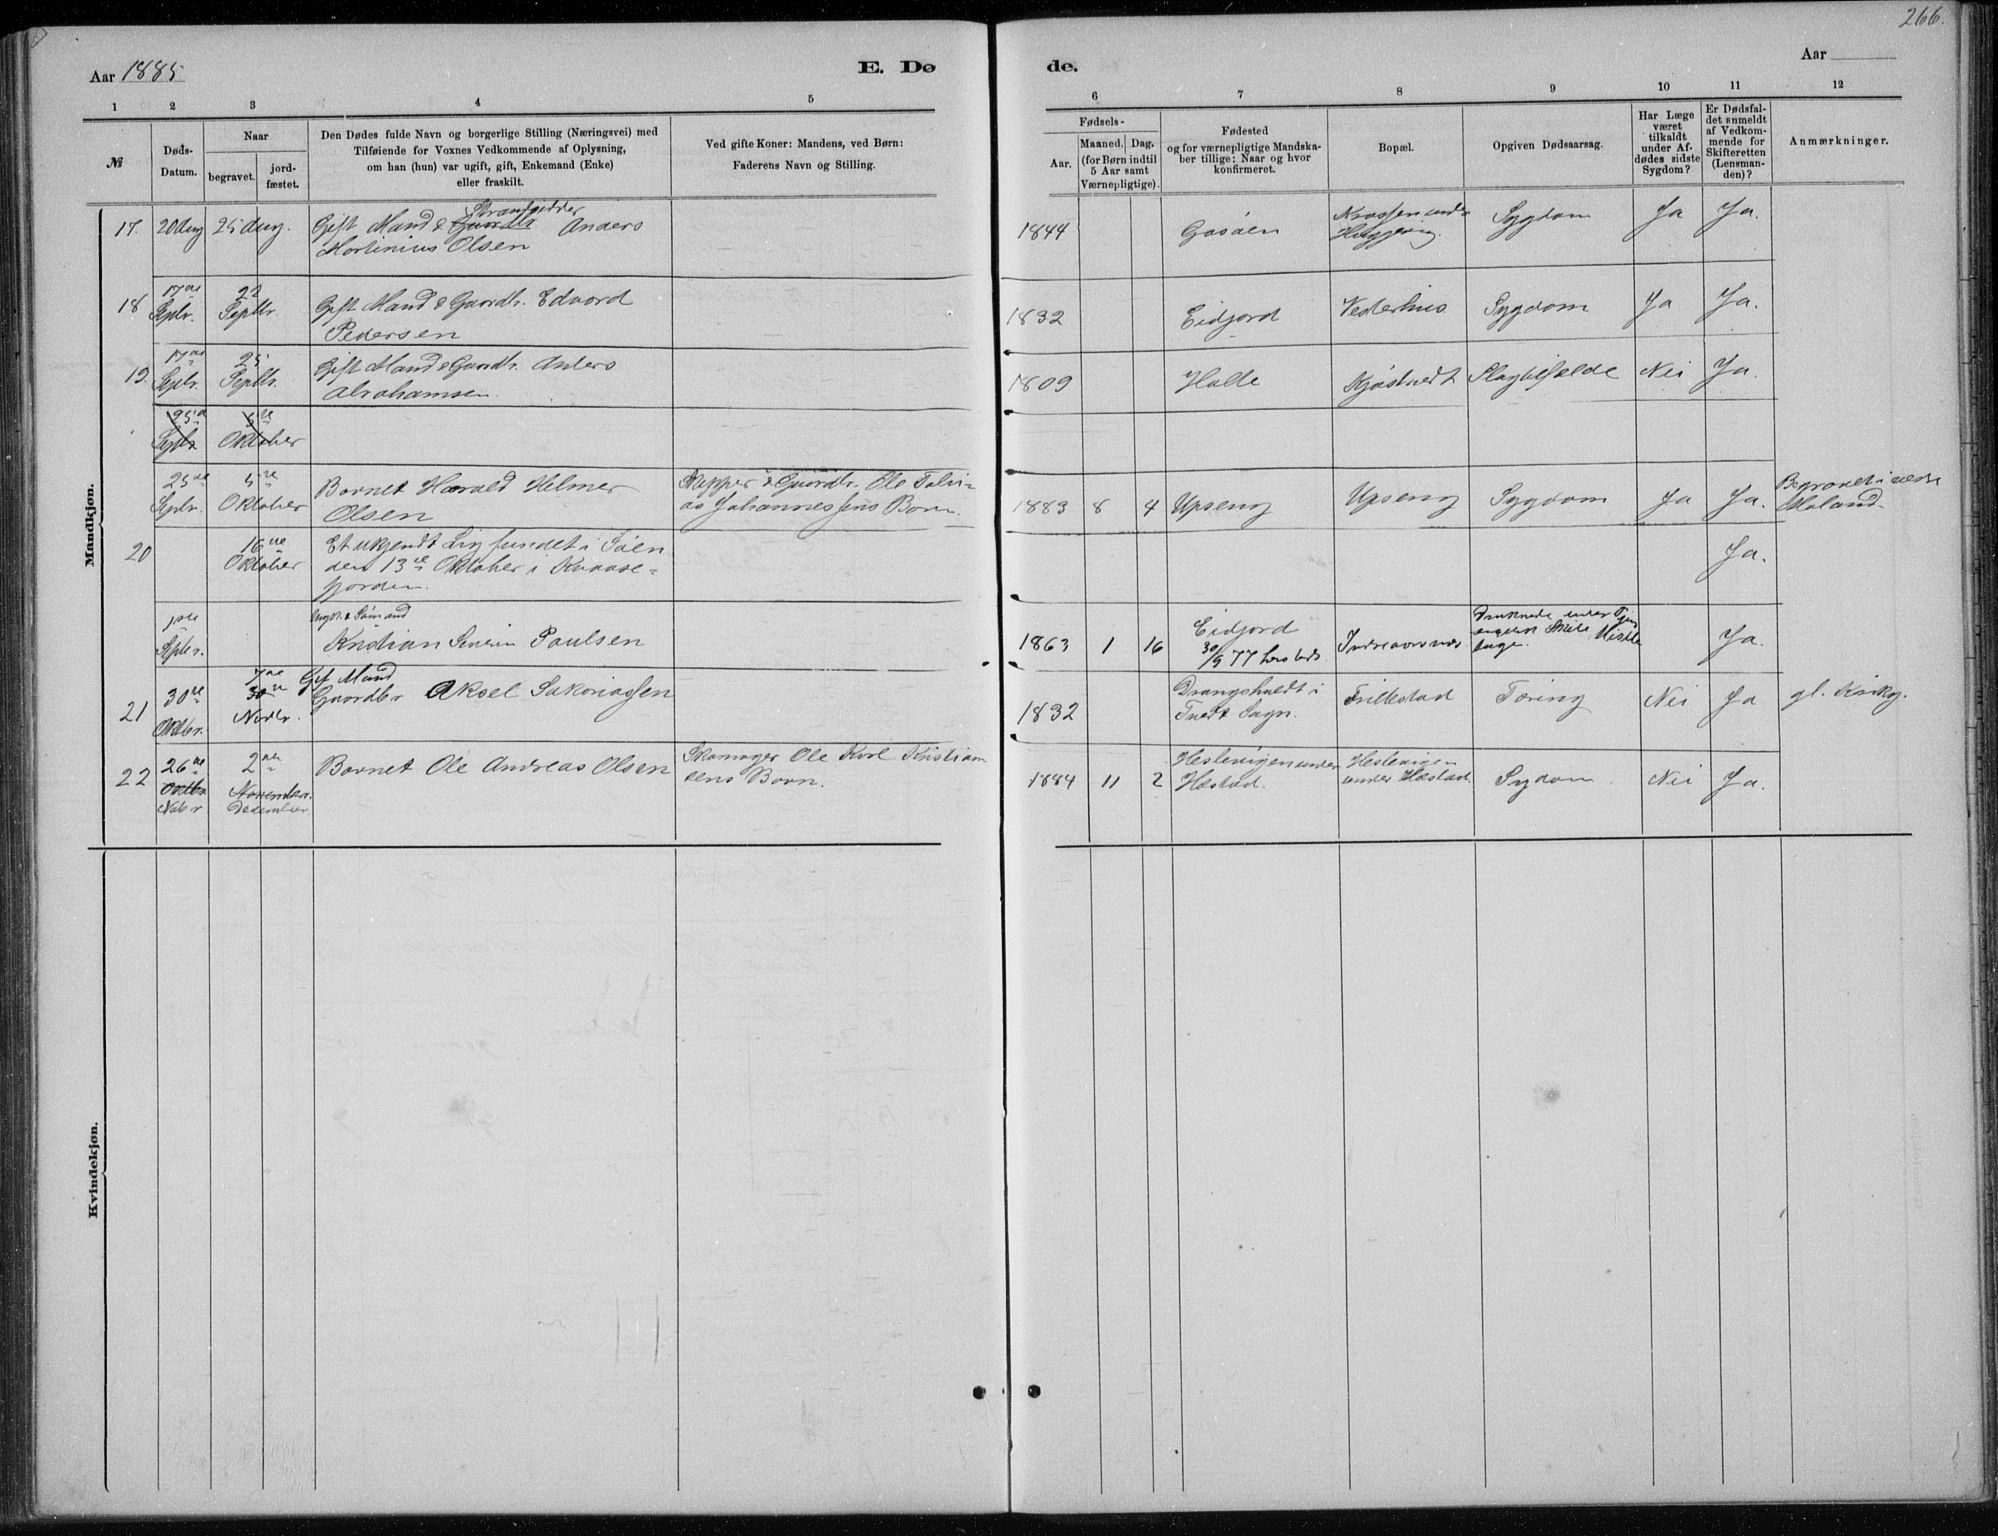 266.
Aar 1885
E. Dø
de.
Aar
1 2 3 4 5
6 7 8 9 10 11 12
№
Døds-
Datum.
Naar
begravet.
jord-
fæstet.
Den Dødes fulde Navn og borgerlige Stilling (Næringsvei) med
Tilføiende for Voxnes Vedkommende af Oplysning,
om han (hun) var ugift, gift, Enkemand (Enke)
eller fraskilt.
Ved gifte Koner: Mandens, ved Børn:
Faderens Navn og Stilling.
Fødsels-
Aar.
Maaned.
Dag.
(for Børn indtil
5 Aar samt
Værnepligtige).
Fødested
og for værnepligtige Mandska-
ber tillige: Naar og hvor
konfirmeret.
Bopæl.
Opgiven Dødsaarsag.
Har Læge
været
tilkaldt
under Af-
dødes sidste
Sygdom?
Er Dødsfal-
det anmeldt
af Vedkom-
mende for
Skifteretten
(Lensman-
den)?
Anmærkninger.
Mandkjøn.
17. 20 Aug 25 Aug.
Strandsidder
Gift Mand & Gaardb Anders
Martinius Olsen
1844 Gåsåen
Sygdom Ja Ja.
18 17de Septr. 22 Septbr.
Gift Mand & Gaardbr. Edvard
Pedersen
1832 Eidjord Vesterhus Sygdom Ja Ja.
19. 17de Septr. 25 Septbr.
Gift Mand & Gaardbr. Anders
Abrahamsen
1809 Halle Slagtilfælde Nei Ja.
25d Septr. 5te Oktober
25de Septr. 5te Oktober
Barnet Harald Helmer
Olsen
Repper & Gaardbr. Ole Tobi-
as Johannessens Barn.
1883 8 4 Upseng Upseng Sygdom Ja Ja.
Begravet i
Moland.
20 16de Oktober
Et ukjendt Lig fundet i Söen
den 13de Oktober i Knaase-
fjorden.
Ja.
1ste Septbr.
Ungk. & Sömand
Kristian Severin Paulsen
1863 1 16 Eidjord
30/9 77
Druknede under
Ja.
21 30te Oktbr. 7de 30te Novbr.
Gif Mand
Gaardbr Aksel Sakariassen
1832 Drangsholdt i
Tvedt Sogn.
Frillestad Tæring Nei Ja gl. Kirkg.
22 26de Oktbr. Nobr 2den November. December
Barnet Ole Andreas Olsen
Skomager Ole Karl Kristian
sens Barn.
1884 11 2 Hestevigen under
Hæstad.
Hestevigen
under Hæstad
Sydom Nei Ja.
Kvindekjøn.